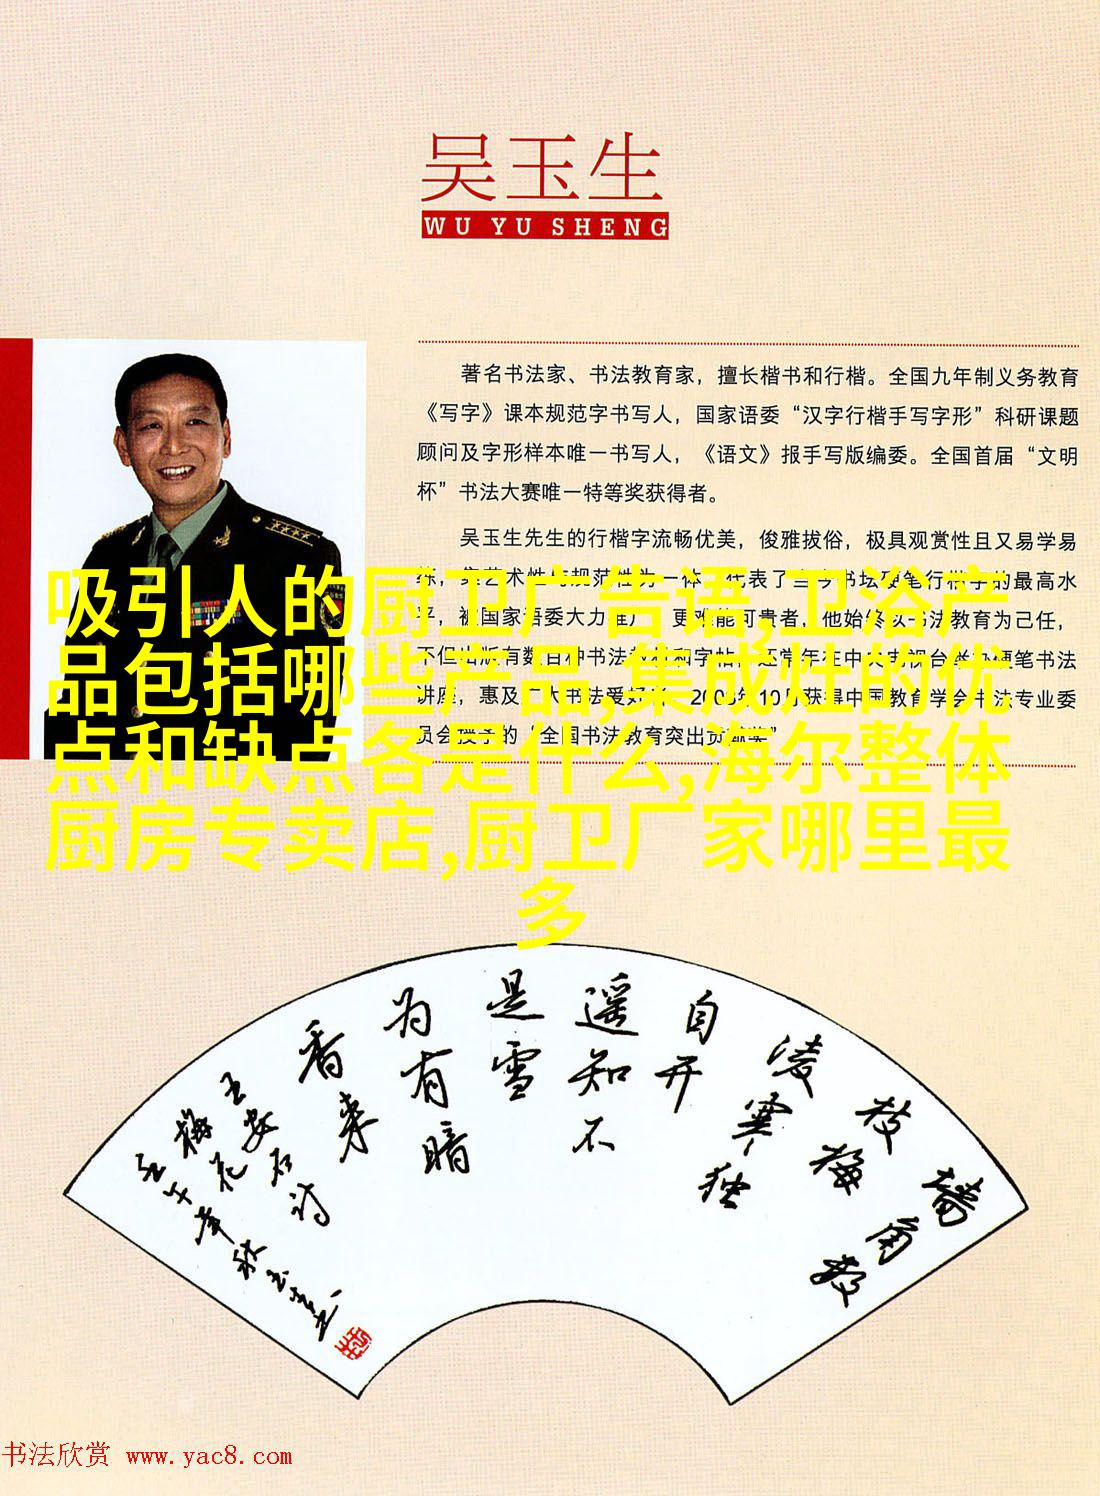 吴玉生
WU YU SHENG
著名书法家、书法教育家，擅长楷书和行楷。全国九年制义务教育
《写字》课本规范字书写人，国家语委“汉字行楷手写字形”科研课题
顾问及字形样本唯一书写人，《语文》报手写版编委。全国首届“文明
杯”书法大赛唯一特等奖获得者。
吴玉生先生的行楷字流畅优美，俊雅拔俗，极具观赏性且又易学易
练，集艺术性与规范性为一体，代表了当今书坛硬笔行楷字的最高水
平，被国家语委大力推广。更难能可贵者，他始终以书法教育为己任，
不但出版有数百种书法教材和字帖，还常年在中央电视台举办硬笔书法
讲座，惠及广大书法爱好者。2005年10月获得中国教育学会书法专业委
员会授予的“全国书法教育突出贡献奖”
吸引人的厨卫广告语,卫浴产
品包括哪些产品,集成灶的优
点和缺点各是什么,海尔整体
厨房专卖店,厨卫厂家哪里最
多
墙角数
枝梅
凌寒独
自开
遥知不
是雪
为有暗
香来
王安石诗
梅花
壬午年秋玉生
书法欣赏 www.yac8.com